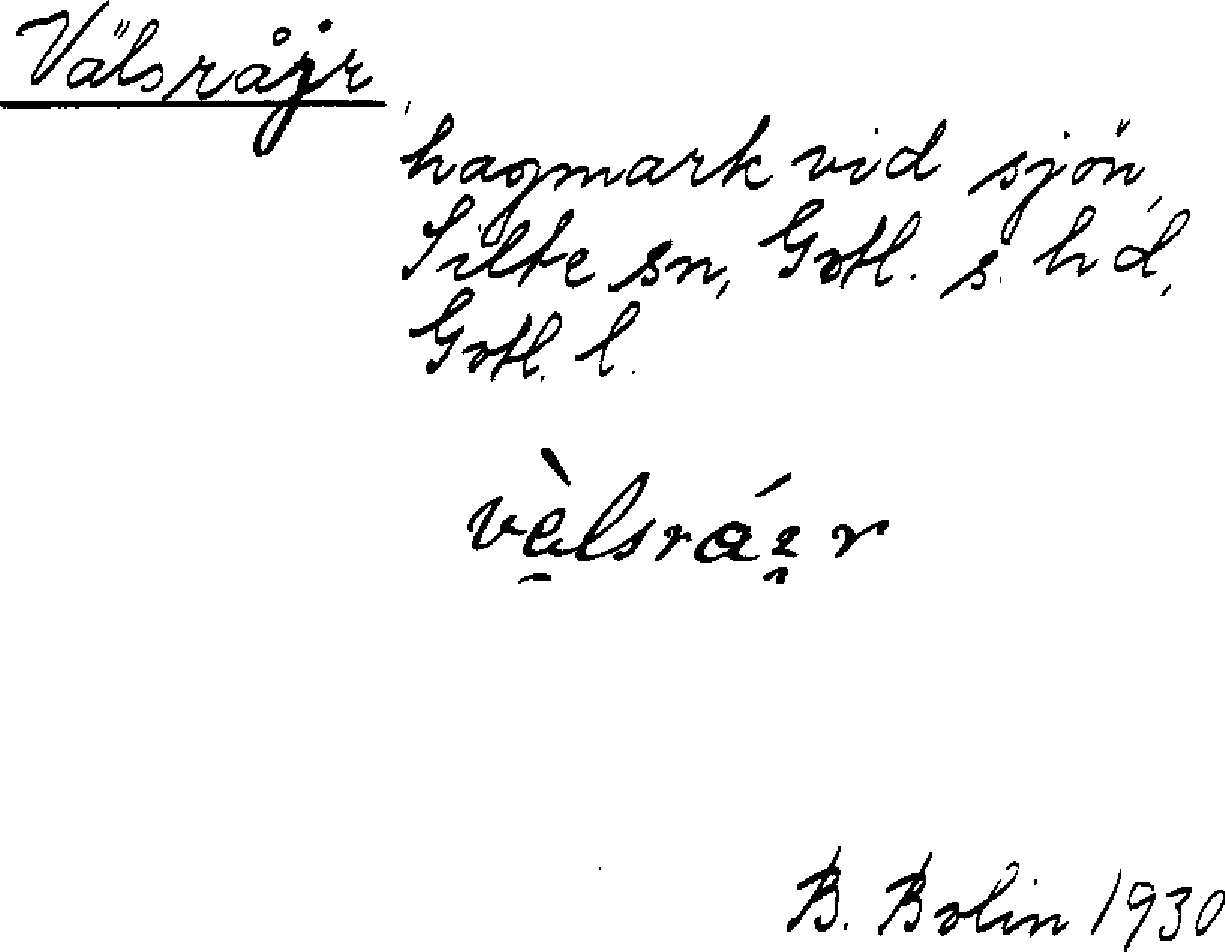 Välsråjr
hagmark vid sjön,
Silte sn, Gotl. s. hd,
Gotl. l.
B. Bolin 1930